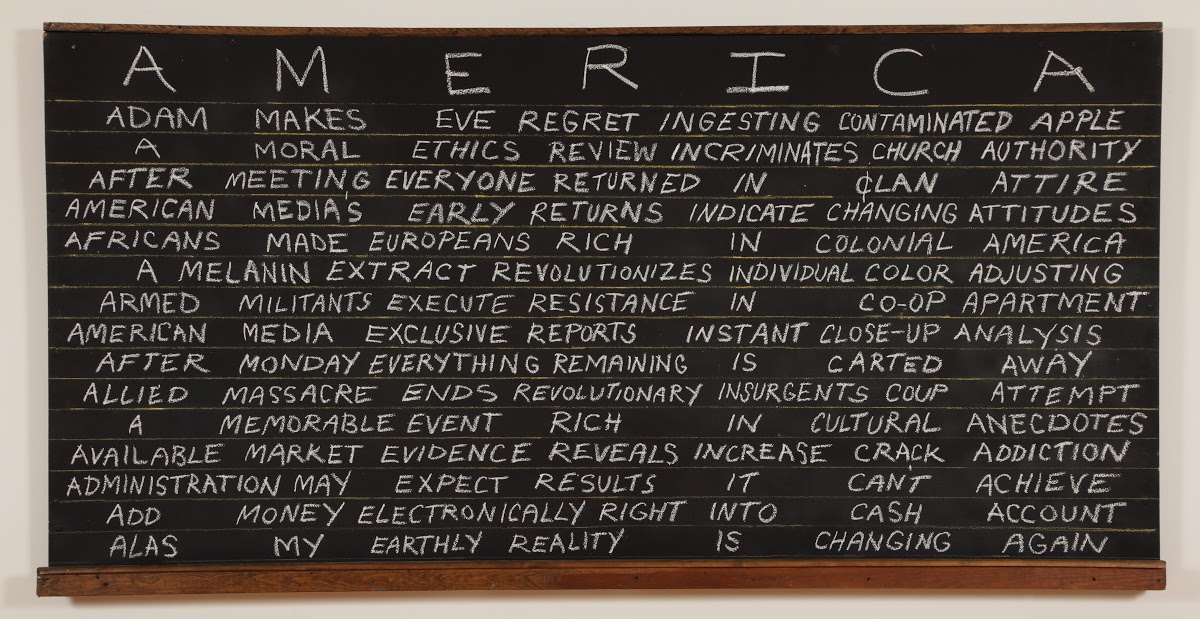 A M E R I C A
ADAM MAKES EVE REGRET INGESTING CONTAMINATED APPLE
A MORAL ETHICS REVIEW INCRIMINATES CHURCH AUTHORITY
AFTER MEETING EVERYONE RETURNED IN CLAN ATTIRE
AMERICAN MEDIAS EARLY RETURNS INDICATE CHANGING ATTITUDES
AFRICANS MADE EUROPEANS RICH IN COLONIAL AMERICA
A MELANIN EXTRACT REVOLUTIONIZES INDIVIDUAL COLOR ADJUSTING
ARMED MILITANTS EXECUTE RESISTANCE IN CO-OP APARTMENT
AMERICAN MEDIA EXCLUSIVE REPORTS INSTANT CLOSE-UP ANALYSIS
AFTER MONDAY EVERYTHING REMAINING IS CARTED AWAY
ALLIED MASSACRE ENDS REVOLUTIONARY INSURGENTS COUP ATTEMPT
A MEMORABLE EVENT RICH IN CULTURAL ANECDOTES
AVAILABLE MARKET EVIDENCE REVEALS INCREASE CRACK ADDICTION
ADMINISTRATION MAY EXPECT RESULTS IT CAN'T ACHIEVE
ADD MONEY ELECTRONICALLY RIGHT INTO CASH ACCOUNT
ALAS MY EARTHLY REALITY IS CHANGING AGAIN